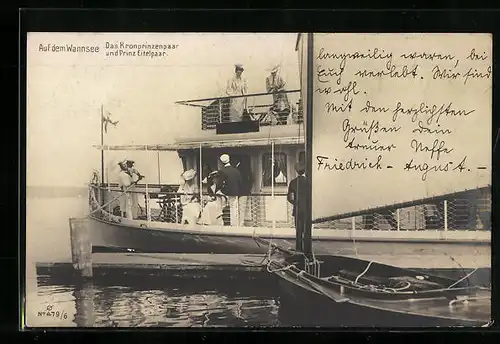 Auf dem Wannsee
Das Kronprinzenpaar
und Prinz Eitelpaar.
langweilig waren, bei
Euch verlebt. Wir sind
wohl.
Mit den herzlichsten
Grüßen Dein
treuer Neffe
Friedrich-August.-
No 479/6